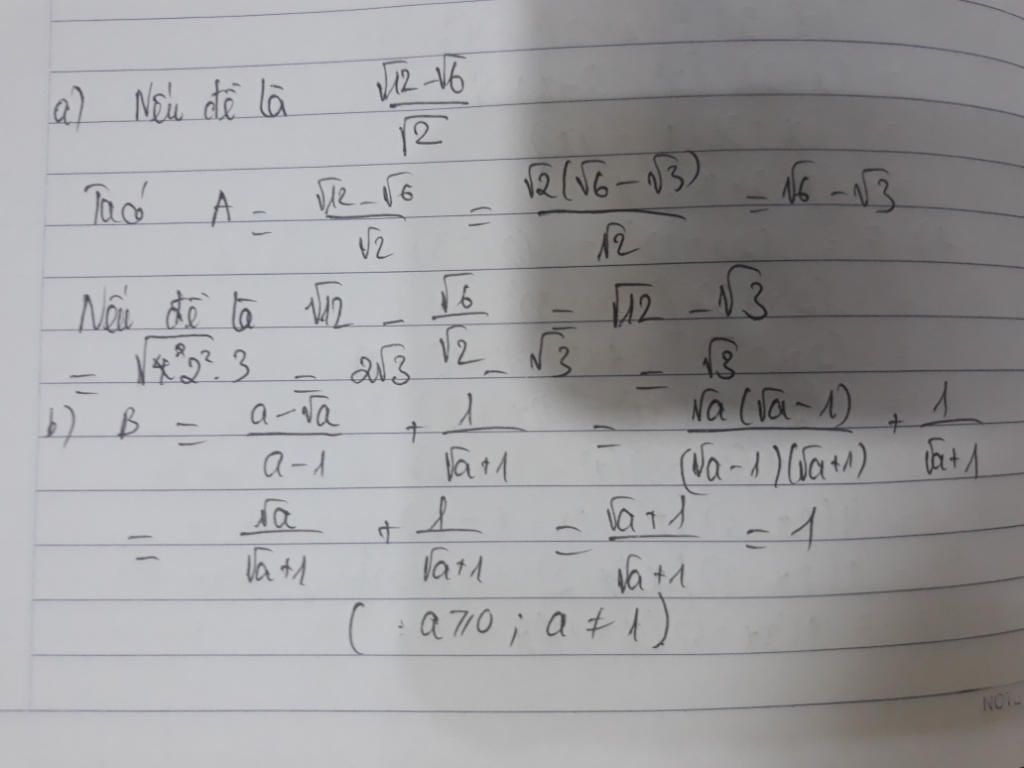 a) Nếu đề là (√12 - √6)/√2
Ta có A = (√12 - √6)/√2 = √2(√6 - √3)/√2 = √6 - √3
Nếu đề là √12 - √6/√2 = √12 - √3
= √2².3 = 2√3 - √3 = √3
b) B = (a - √a)/(a - 1) + 1/(√a + 1) = √a(√a - 1)/((√a - 1)(√a + 1)) + 1/(√a + 1)
= √a/(√a + 1) + 1/(√a + 1) = (√a + 1)/(√a + 1) = 1
(: a ⩾ 0 ; a ≠ 1)